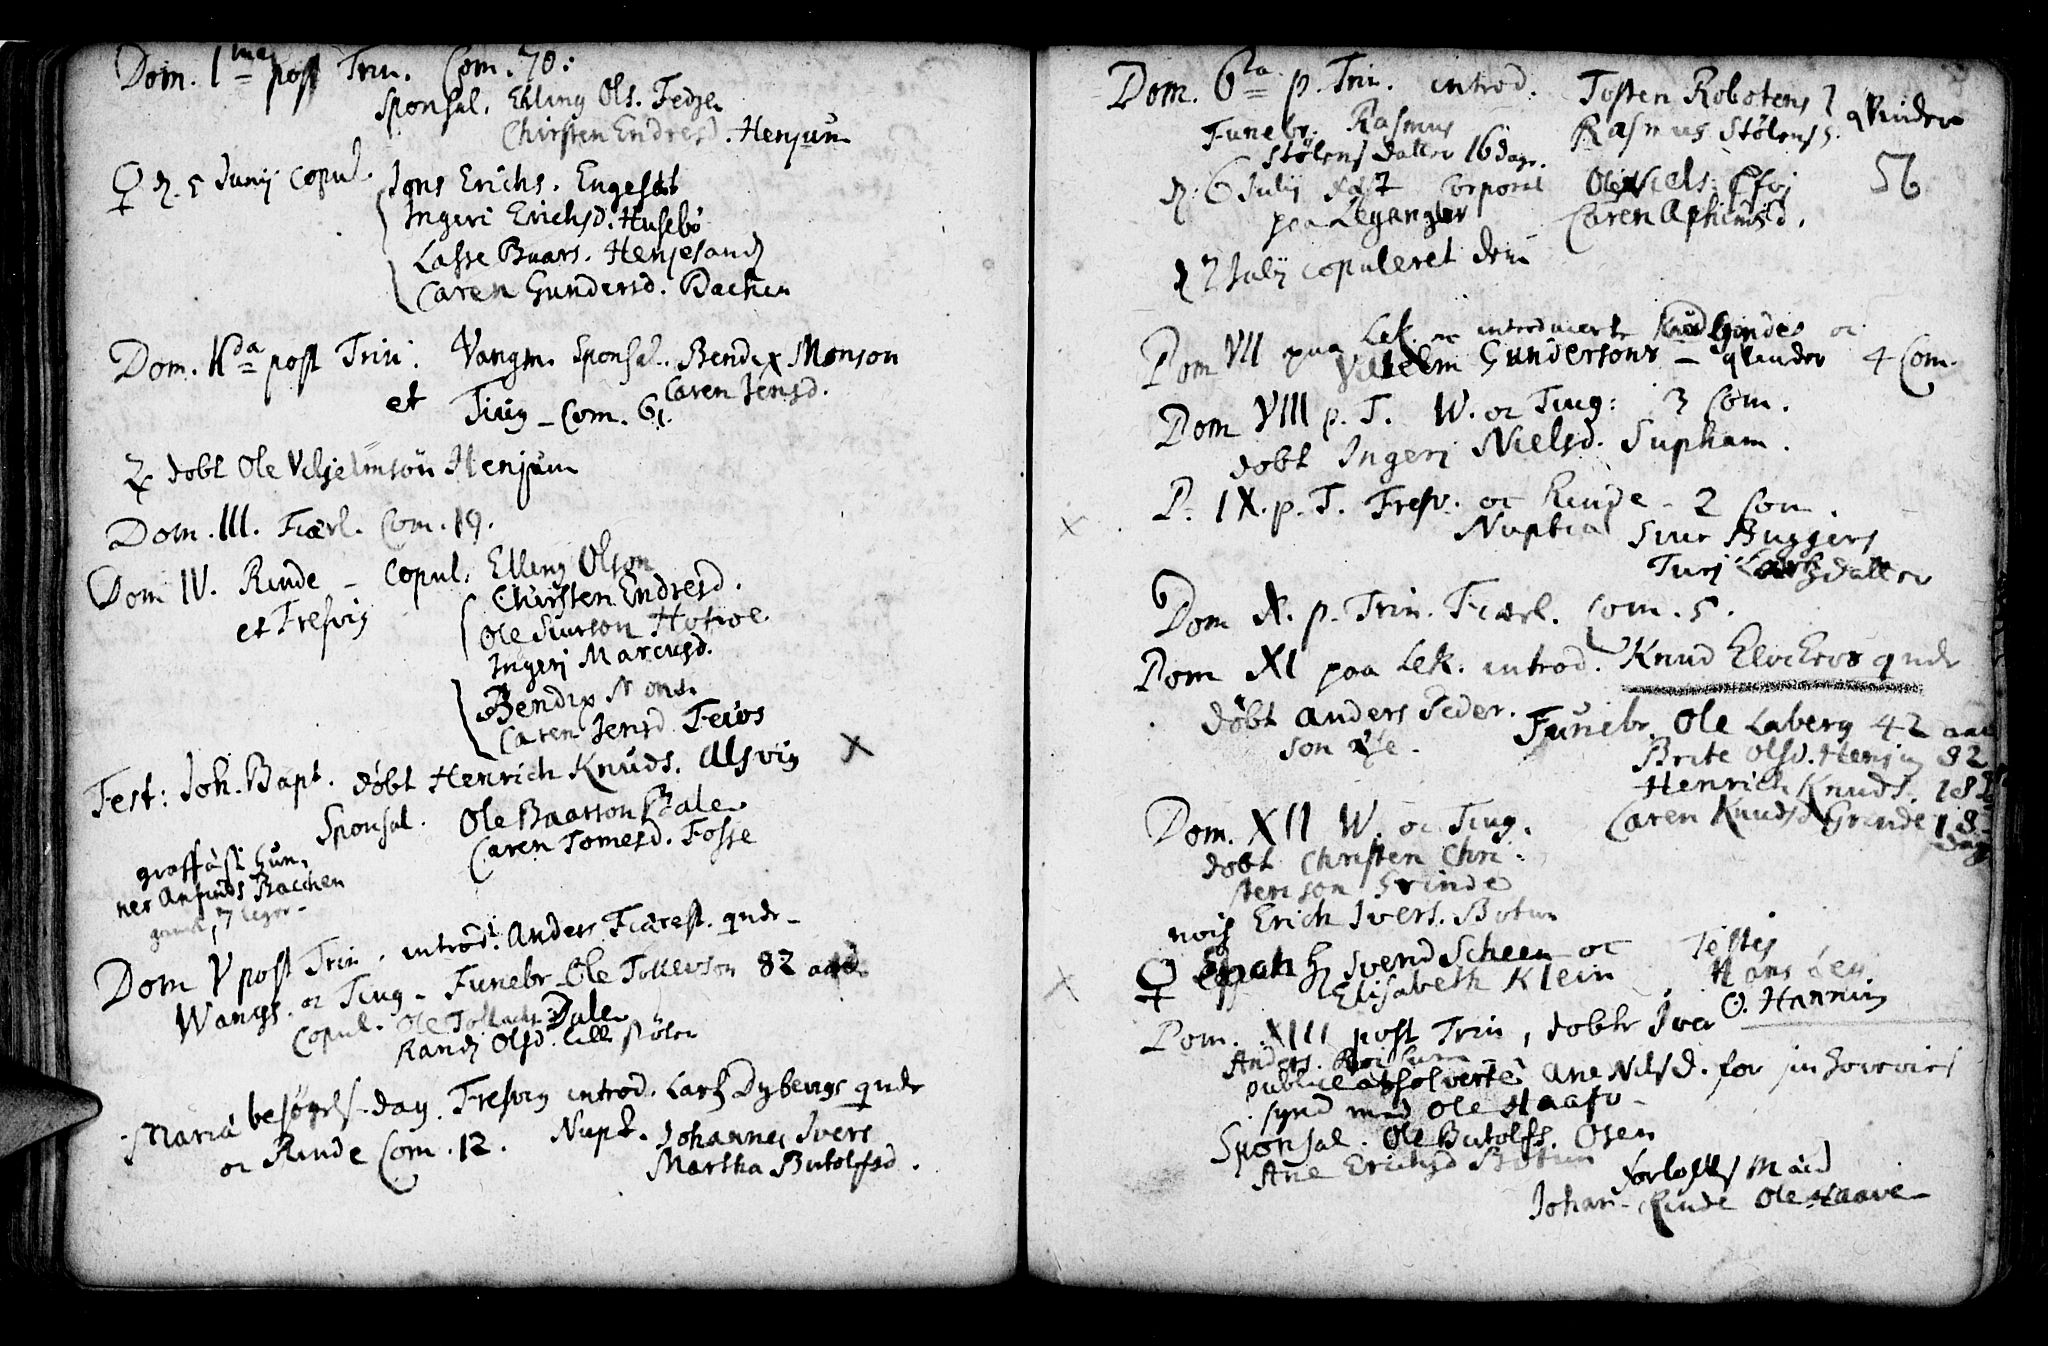 Dom. 1ma post Trin. Com. 70:
Sponsal. Elling Ols. Fedze
Chirsten Endresd. Henjum
♀ d. 5 Junij Copul. Jons Erichs. Engesæt
Ingeri Erichsd. Husebö
Lasse Buars. Henjesand
Caren Gundersd. Bachen
Dom. IIda post Trin. Vangm. Sponsal. Bendix Monson
Caren Jensd.
et Tiug – Com. 61.
♃ dobt Ole Viljelmson Henjum
Dom. III. Fiærl. Com. 19.
Dom IV. Rinde – Copul. Elling Olson
Chirsten Endresd.
et Fresvig
Ole Siurson Hotvoe.
Ingeri Marcusd.
Bendix Mons.
Caren Jensd. Feios
Fest: Joh. Bapt. döbt Henrich Knuds. Alsvig
Sponsal. Ole Baarson Bale
Caren Tomesd. Fosse
graffäst Gun,
ner Anfinds Bachen
Dom V post Trin. introd. Anders Fiærest. qvde –
Wangs. oc Tiug – Funebr. Ole Tollevson 82 aar
Copul. Ole Dale
Randi Olsd. lille Stölen
Mariä besögels-dag. Fresvig introd. Lars Dybevigs qvde
oc Rinde Com. 12. Nupt. Johannes Ivers
Martha Butolfsd.
Dom. 6ta p. Trin. introd. Tosten Robotens
Rasmus Stölens qvinder
Funebr. Rasmus
Stölens datter 16 dage.
56
d. 6 Julij Corporal Ole Niels.
paa Leganger Caren
d 7 Julij copuleret dem
Dom VII paa Lek. oc introducerte Knud Grindes oc
Vilhelm Gundersons – qvinder 4 Com.
Dom VIII p. T. W. oc Tiug: 3 Com.
döbt Ingeri Nielsd. Supham.
D. IX. p. T. Fresv. oc Rinde – 2 Com.
Nuptia Siur Buggers
Turj Larsdatter
Dom X. p. Trin. Fiærl. Com. 5.
Dom XI paa Lek. introd. Knud qvde
döbt Anders Peder.
son
Funebr. Ole Laberg 42 aar
Brite Olsd. Henjum 82
Henrich Knuds.
Caren Knudsd Grinde 18
dage
Dom. XII W. oc Tiug.
döbt Christen Chri-
stenson Grinde
noch Erich Ivers. Botun
♀ Svend Scheen oc
Elisabeth Klein
Testes
Hans
O. Hanning
Dom. XIII post Trin, döbte Iver
Anders.
publice absolverte Ane Nilsd. for
synd med Ole Haave –
Sponsal. Ole Butolfs. Osen
Ane Erichsd Botun
Forlofts Mænd
Johan Rinde Ole Haave